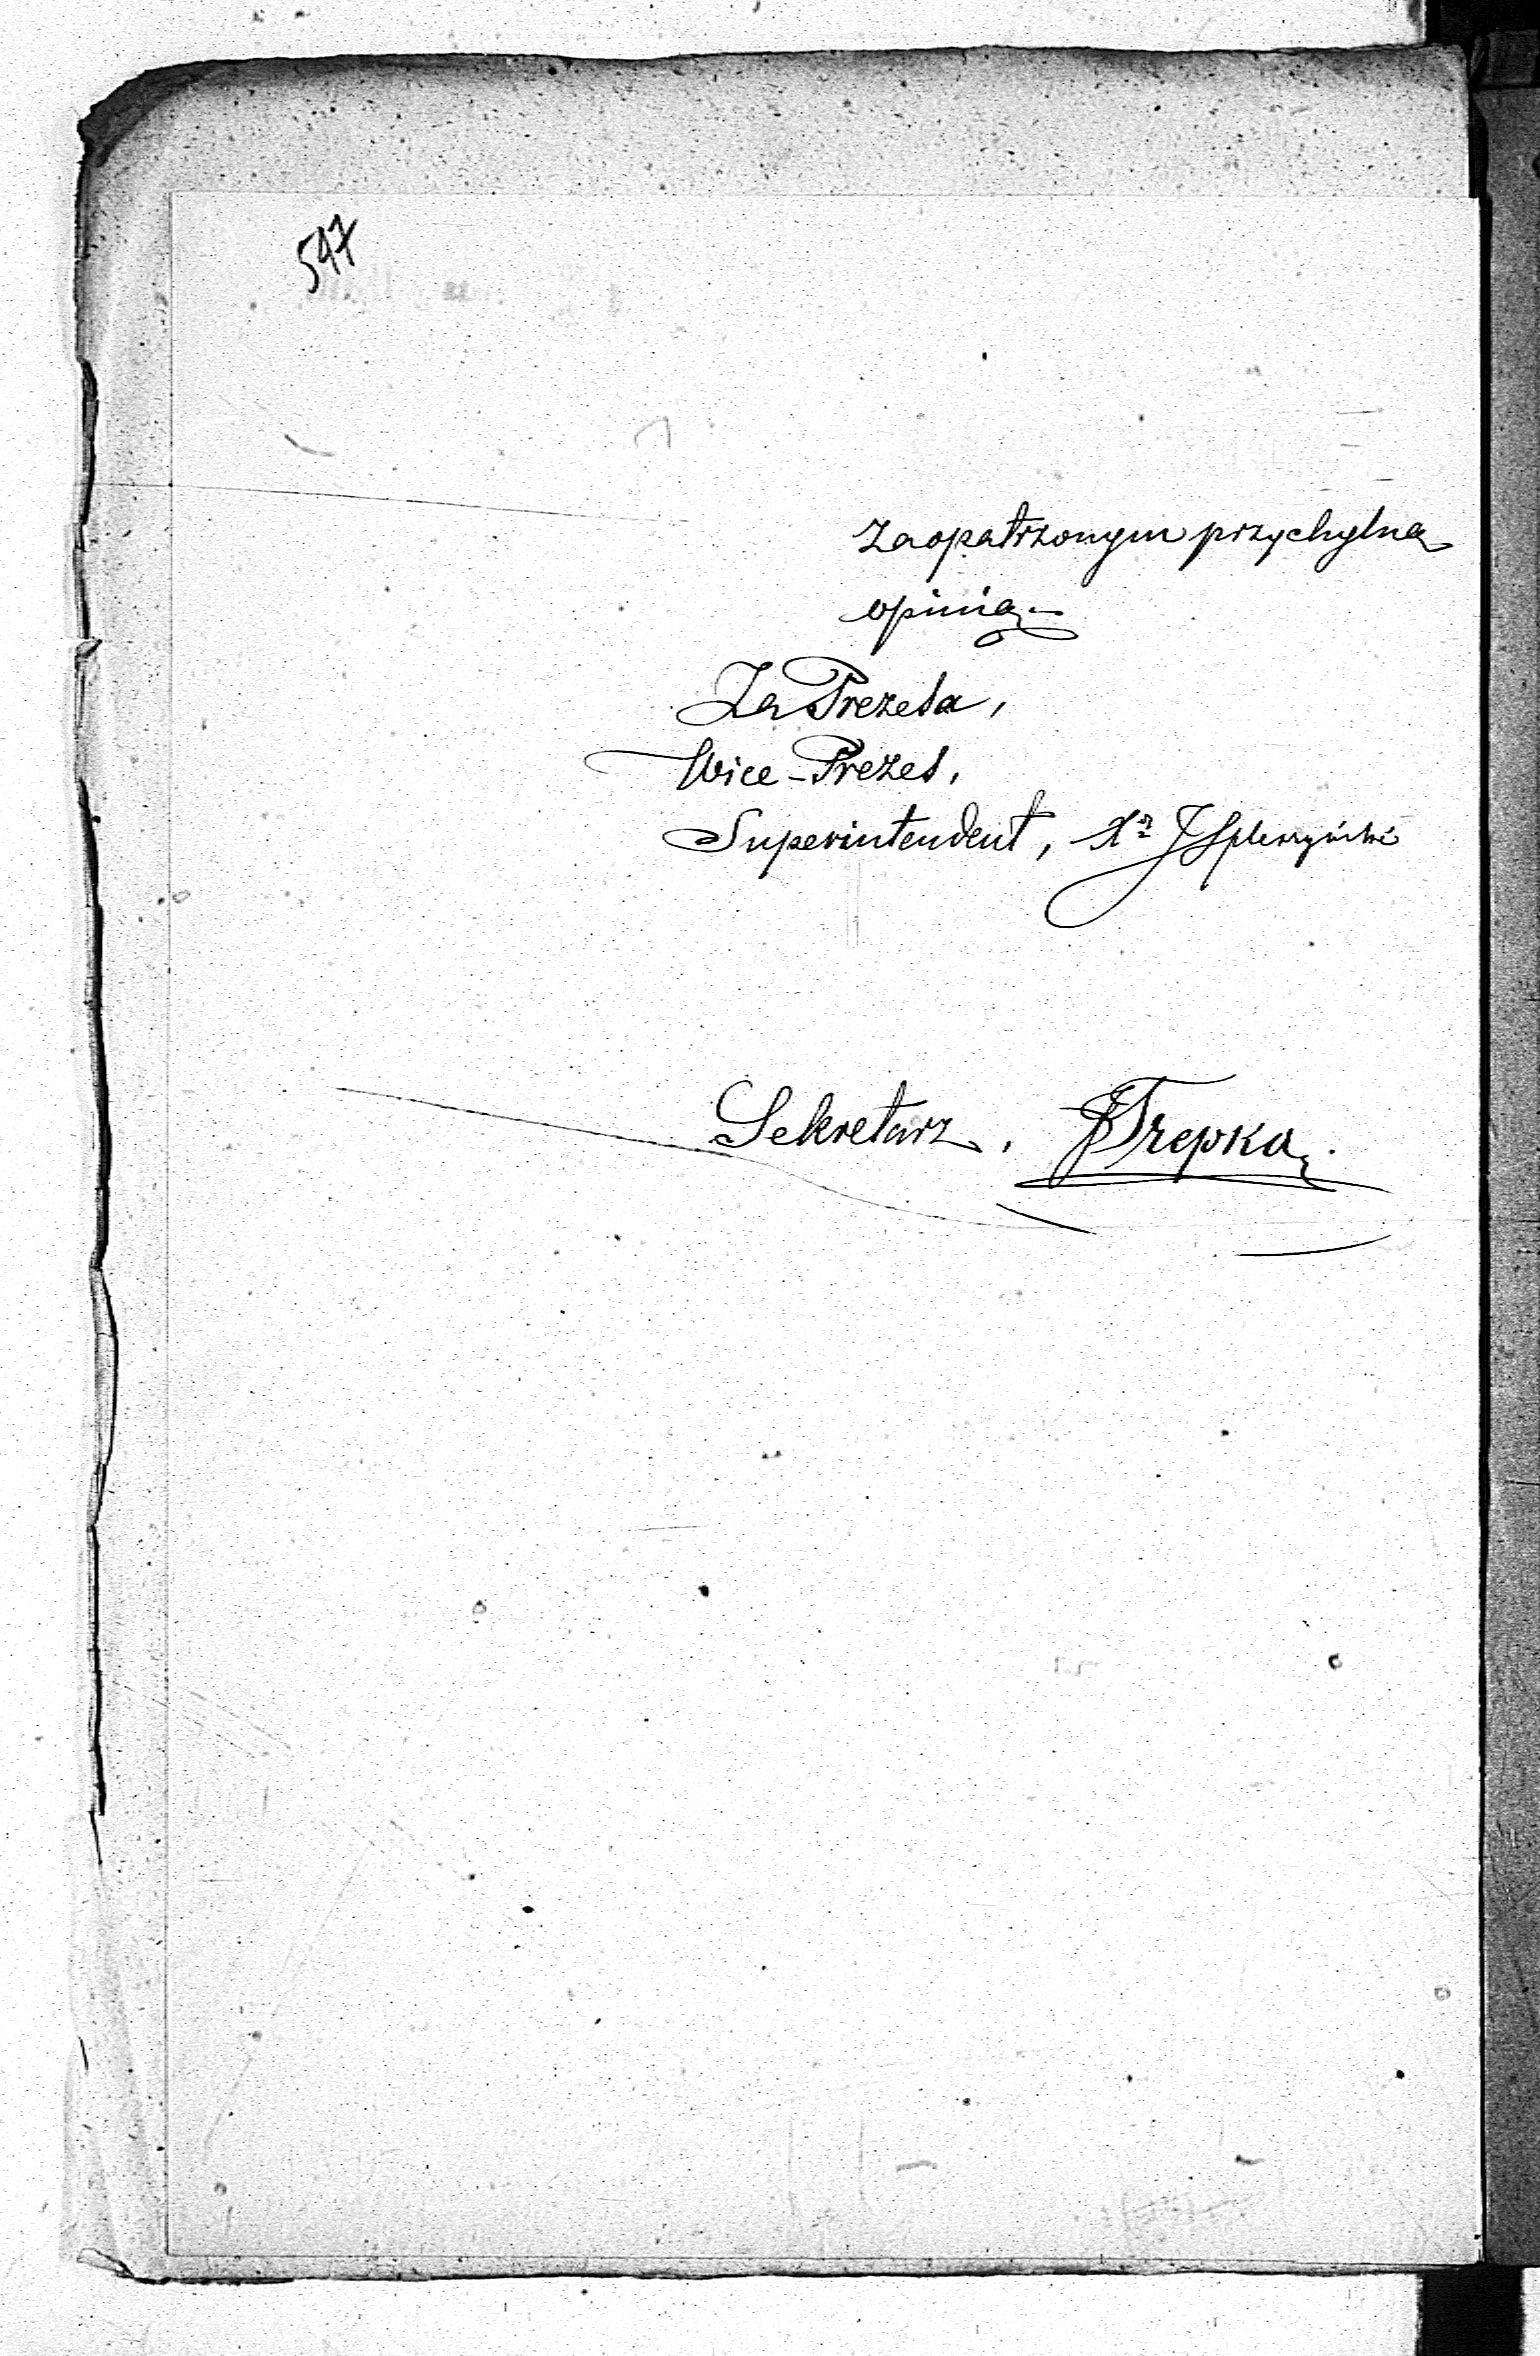 547
zaopatrzonym przychylną
opinią.
Za Prezesa,
Wice-Prezes,
Superintendent, X.
Sekretarz, Trepka.